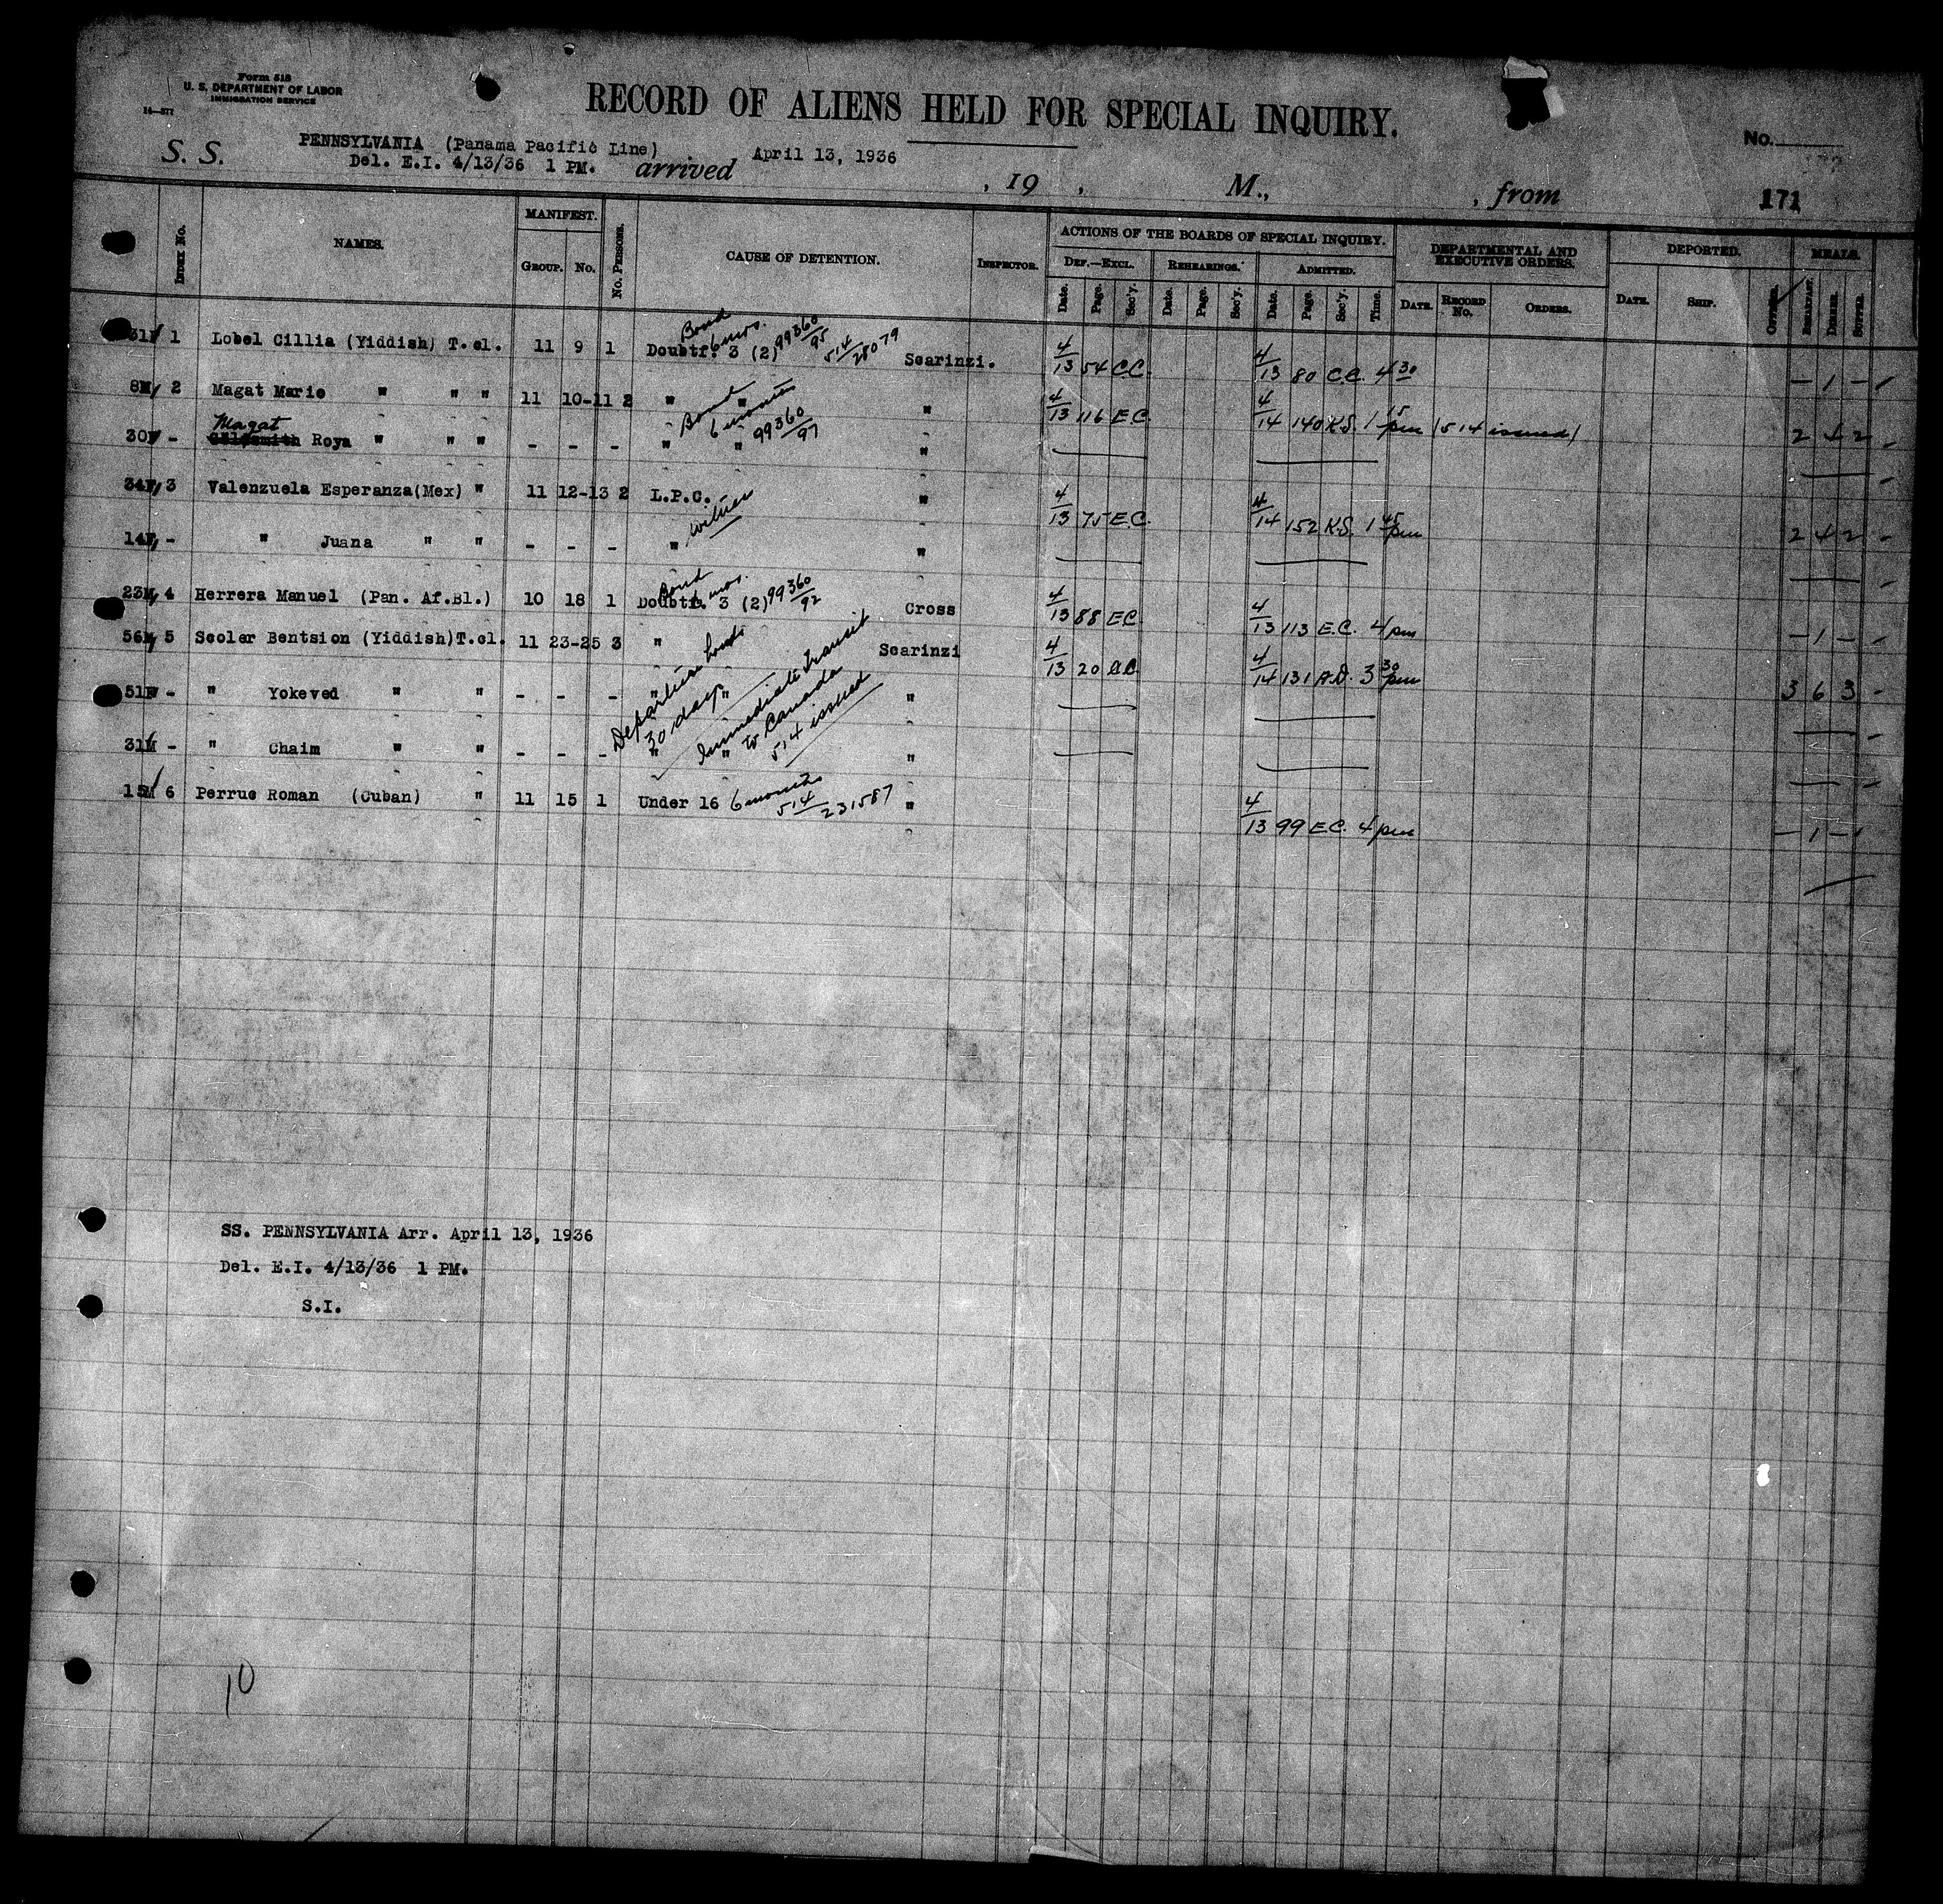 Form 518
U. S. DEPARTMENT OF LABOR
IMMIGRATION SERVICE
14—577
RECORD OF ALIENS HELD FOR SPECIAL INQUIRY.
No.
S. S. PENNSYLVANIA (Panama Pacific Line) arrived April 13, 1936 , 19 , M., , from 171
Del. E.I. 4/13/36 1 PM.
INDEX No. NAMES. MANIFEST. GROUP. No. No. PERSONS. CAUSE OF DETENTION. INSPECTOR. ACTIONS OF THE BOARDS OF SPECIAL INQUIRY. DEPARTMENTAL AND EXECUTIVE ORDERS. DEPORTED. MEALS.
DEF.—EXCL. REHEARINGS. ADMITTED.
Date. Page. Sec'y. Date. Page. Sec'y. Date. Page. Sec'y. Time. DATE. RECORD No. ORDERS. DATE. SHIP. OFFICER. BREAKFAST. DINNER. SUPPER.
Bond 6 mos. 99360/95 514/28079
31F 1 Lobel Cillia (Yiddish) T.cl. 11 9 1 Doubtf. 3 (2) Scarinzi. 4/13 54 C.C. 4/13 80 C.C. 4 30 — 1 —
8M 2 Magat Mario " " " 11 10-11 2 " " " 4/13 116 E.C. 4/14 140 K.S. 1 15 pm (514 issued) 2 4 2
Bond 6 months 99360/97
Magat
30F - Roya " " " - - - " " "
34F 3 Valenzuela Esperanza(Mex) " 11 12-13 2 L.P.C. " 4/13 75 E.C. 4/14 152 K.S. 1 45 pm 2 4 2
witness
14F - " Juana " " - - - " "
Bond 99360/92
23M 4 Herrera Manuel (Pan. Af.Bl.) 10 18 1 Doubtf. 3 (2) Cross 4/13 88 E.C. 4/13 113 E.C. 4 pm — 1 —
56M 5 Scoler Bentsion (Yiddish)T.cl. 11 23-25 3 " Scarinzi 4/13 20 4/14 131 A.D. 3 30 pm 3 6 3
51F - " Yokeved " " - - - " " "
Departure
30 days
Immediate transit
to Canada
514 issued
31M - " Chaim " " - - - " " "
15M 6 Perruc Roman (Cuban) " 11 15 1 Under 16 6 months 514/231587 " 4/13 99 E.C. 4 pm — 1 —
SS. PENNSYLVANIA Arr. April 13, 1936
Del. E.I. 4/13/36 1 PM.
S.I.
10